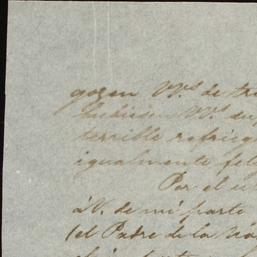 gozen VVs de
hubiesen VVs
terrible refrieg
igualmente fel
Por el
á V. de mi parte
(el Padre de la